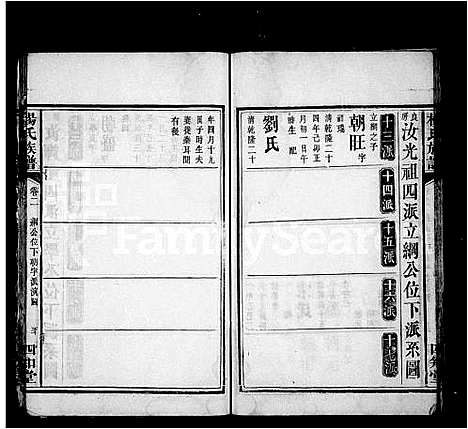 楊氏族譜
良房
汝光祖四派立綱公位下派系圖
十三派
十四派
十五派
十六派
十七派
立綱之子
朝旺字
祥瑞
清乾隆二十
四年己卯正
月初一日
時生 配
劉氏
清乾隆二十
年四月十九
日子時生夫
妻徙秦耳關
有後
楊氏族譜
卷二
綱公位下功字派演圖
四知堂
FamilySearch